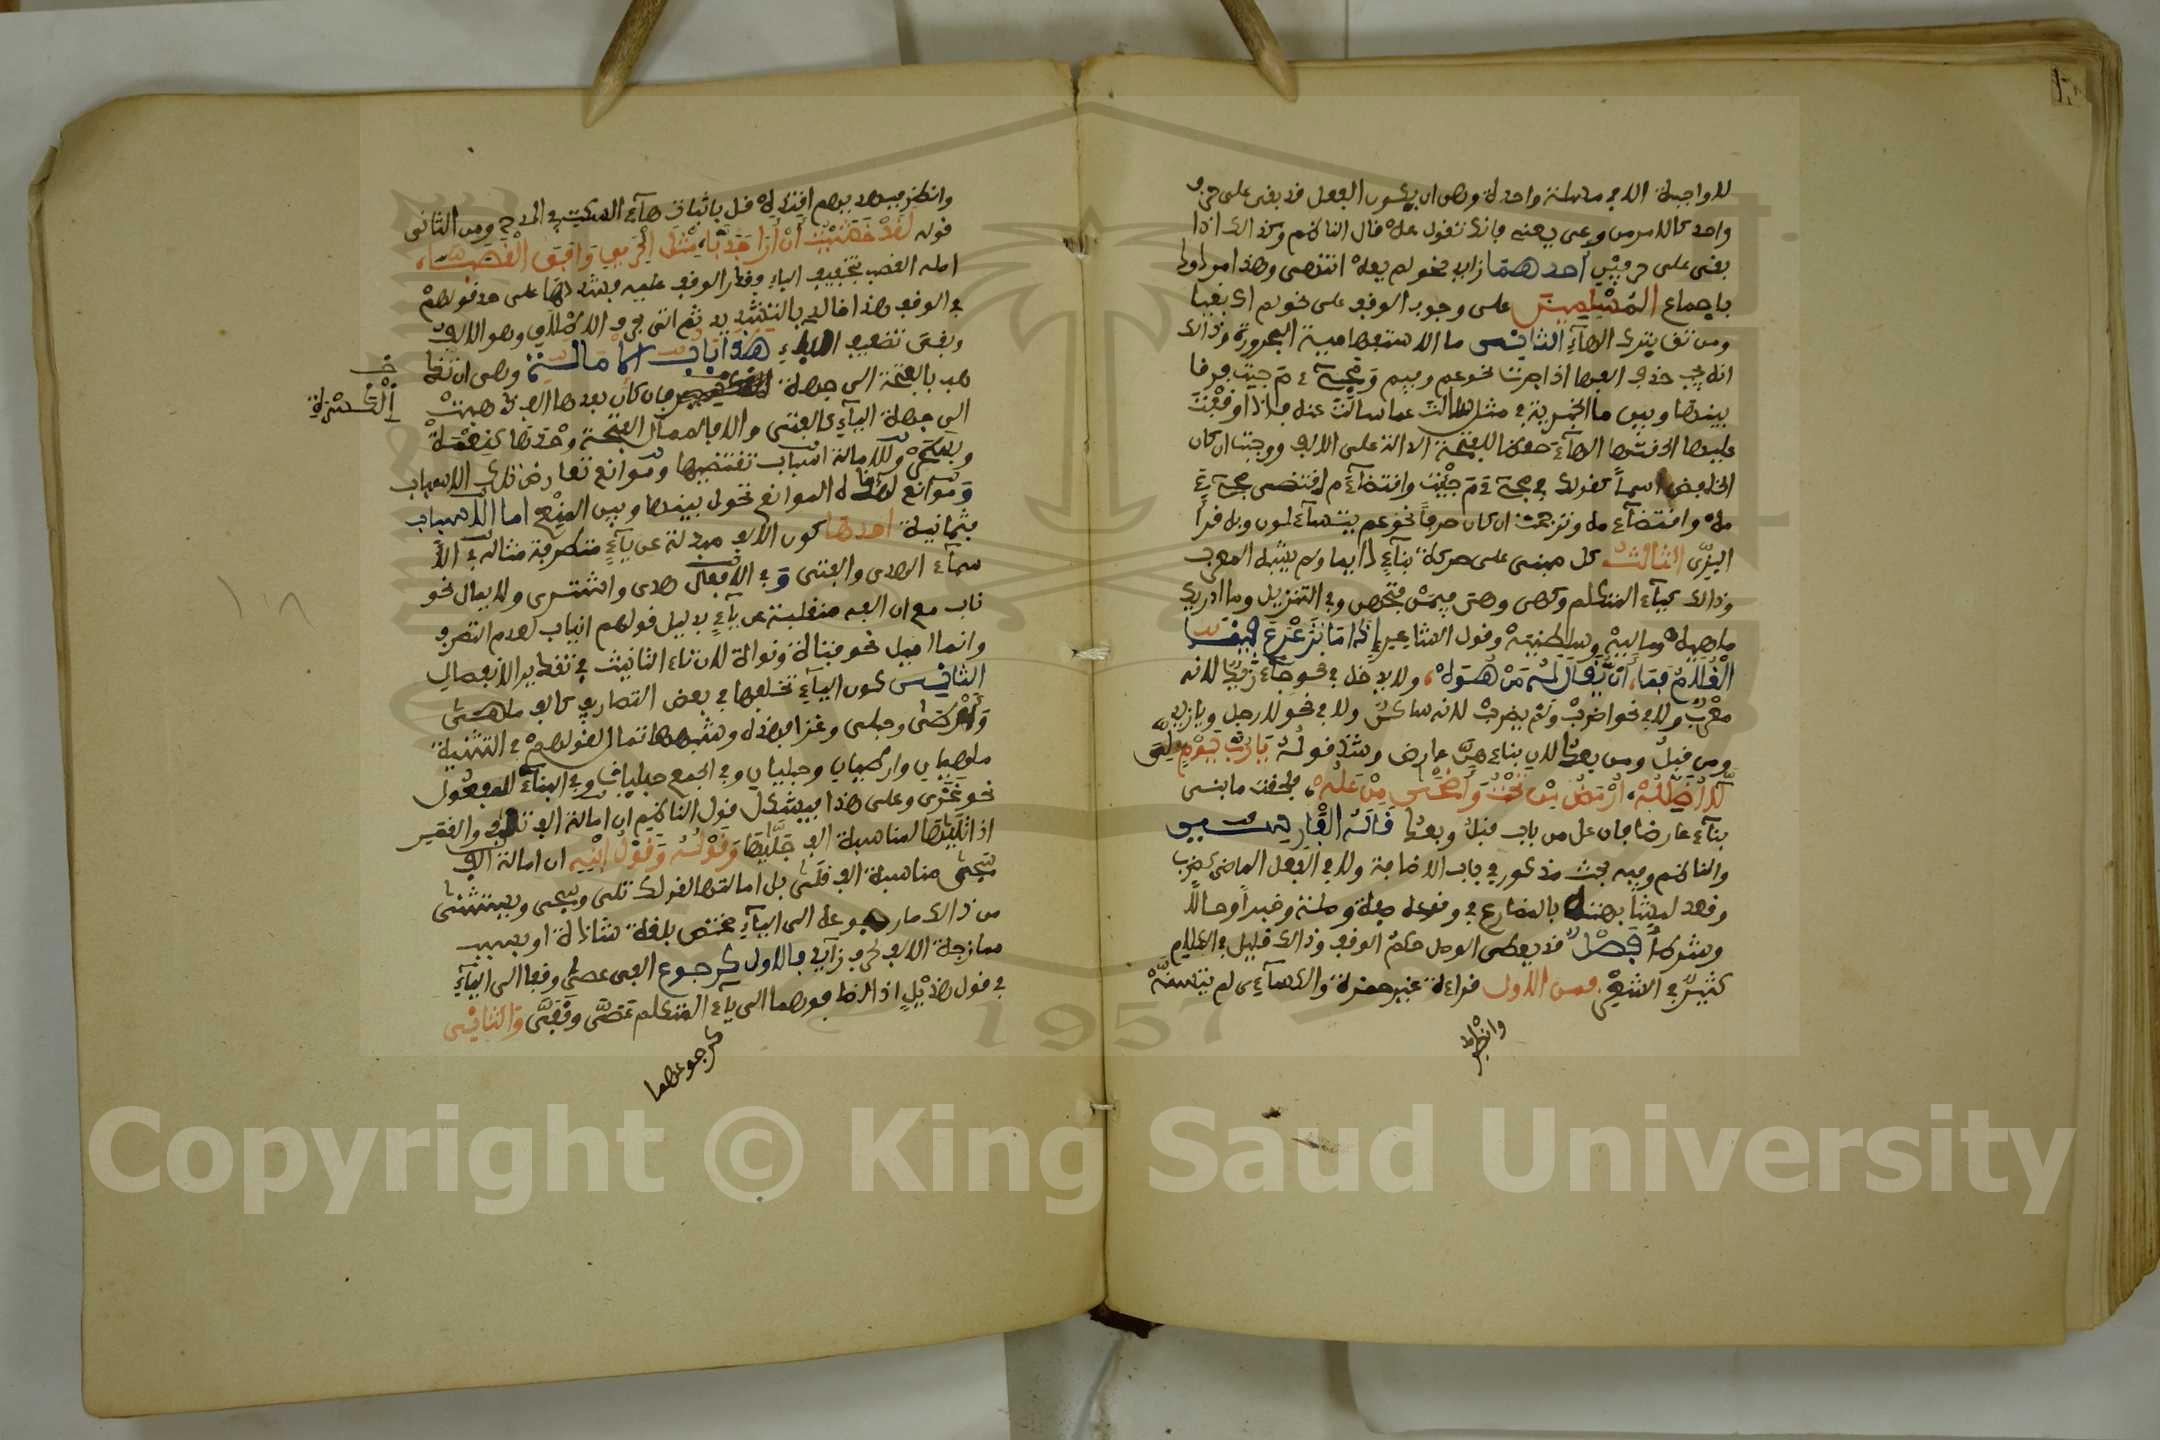 للواجبة الا في مسئلة واحدة وهي ان يكون الفعل قد بقي على حرف
واحد كالامر من وعى يعي فانك تقول عه قال الناظم وكذالك اذا
بقي على حرفين احدهما زايد نحو لم يعه انتهى وهذا مردود
باجماع المسلمين على وجوب الوقف على نحو لم اك بغيا
ومن تق بترك الهاء الثاني ما الاستفهامية المجرورة وذالك
انه يجب حذف الفها اذا جرت نحو عم وفيم ومجيء م جيت فرقا
بينها وبين ما الخبرية في مثل سالت عما سالت عنه فاذا وقفت
عليها الحقتها الهاء حفظا للفتحة الدالة على الالف ووجبت ان كان
الخافض اسما كقولك في مجيء م جيت واقتضاء م اقتضى مجيء
مه واقتضاء مه وترجحت ان كان حرفا نحو عم يتساءلون وبه قرأ
البزي الثالث كل مبني على حركة بناء دايما ولم يشبه المعرب
وذالك كياء المتكلم وكهي وهو فيمن فتحهن وفي التنزيل وما ادريك
ماهيه وماليه وسلطانيه وقول الشاعر اذا ما ترعرع فينا
الغلام فما، ان يقال له من هوه، ولا يدخل في نحو جاء زيد لانه
معرب ولا في نحو اضرب ولم يضرب لانه ساكن ولا في نحو لا رجل ويا زيد
ومن قبل ومن بعد لان بناءهن عارض وشذ قوله يا رب يوم لي
لا اظلله، ارمض من تحت واضحى من عله، فلحقت ما بني
بناء عارضا فان عل من باب قبل وبعد قاله الفارسي
والناظم وفيه بحث مذكور في باب الاضافة ولا في الفعل الماضي كضرب
وقعد لمشابهته بالمضارع في وقوعه صفة وصلة وخبرا وحالا
وشرطا فصل قد يعطى الوصل حكم الوقف وذالك قليل في الكلام
كثير في الشعر فمن الاول قراءة غير حمزة والكساءي لم يتسنه
وانظر
وانظر فبهديهم اقتده قل باثبات هاء السكت في الدرج ومن الثاني
قوله لقد خشيت ان ارا جدبا، مثل الحريق وافق القصبا،
اصله القصب بتخفيف الباء وقدر الوقف عليه فشددها على حد قولهم
في الوقف هذا خالد بالتشديد ثم اتى بحرف الاطلاق وهو الالف
وبقي تضعيف الباء هذا باب الامالة وهي ان تذ
هب بالفتحة الى جهة فان كان بعدها الف ذهبت
خ الكسرة
الى جهة الياء كالفتى والا فالممال الفتحة وحدها كنعمة
وبسحر وللامالة اسباب تقتضيها وموانع تعارض تلك الاسباب
وموانع لهذه الموانع تحول بينها وبين المنع اما الاسباب
فثمانية احدها كون الالف مبدلة عن ياء متطرفة مثاله في الا
سماء الهدى والفتى وفي الافعال هدى واشترى ولا يمال نحو
ناب مع ان الفه منقلبة عن ياء بدليل قولهم انياب لعدم التطرف
وانما اميل نحو فتاة ونواة لان تاء التانيث في تقدير الانفصال
الثاني كون الياء تخلفها في بعض التصاريف كالف ملهى
وارطى وحبلى وغزا فهذه وشبهها تمال لقولهم في التثنية
ملهيان وارطيان وحبليان وفي الجمع حبليات وفي البناء للمفعول
نحو غزى وعلى هذا فيشكل قول الناظم ان امالة الف تلا والقمر
اذا تليها لمناسبة الف جليها وقوله وقول ابنه ان امالة الف
سجى مناسبة الف قلى بل امالتها لقولك تلى وسجى ويستثنى
من ذالك ما رجوعه الى الياء مختص بلغة شاذة او بسبب
ممازجة الالف لحرف زايد فالاول كرجوع الف عصى وقفا الى الياء
في قول هذيل اذا اضافوهما الى ياء المتكلم عصي وقفي والثاني
كرجوعهما